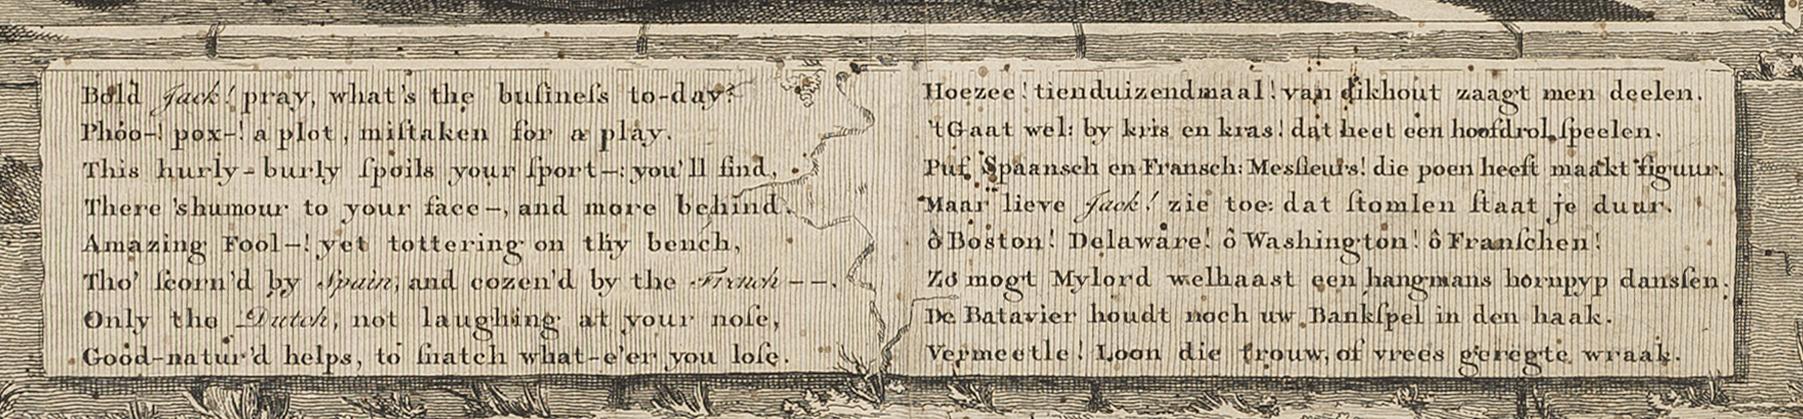 Bold Jack! pray, what's the buſineſs to-day?
Phoo-! pox-! a plot, miſtaken for a play.
This hurly-burly ſpoils your ſport-: you'll find,
There 's humour to your face-, and more behind.
Amazing Fool-! yet tottering on thy bench,
Tho' ſcorn'd by Spain, and cozen'd by the French--.
Only the Dutch, not laughing at your noſe,
Good-natur'd helps, to ſnatch what-e'er you loſe.
Hoezee! tienduizendmaal! van dikhout zaagt men deelen.
't Gaat wel: by kris en kras! dat heet een hoofdrol ſpeelen.
Puf Spaansch en Fransch: Mesſieurs! die poen heeft maakt figuur.
Maar lieve Jack! zie toe: dat ſtomlen ſtaat je duur.
ô Boston! Delaware! ô Washington! ô Franſchen!
Zo mogt Mylord welhaast een hangmans hornpyp dansſen.
De Batavier houdt noch uw Bankſpel in den haak.
Vermeetle! Loon die trouw, of vrees geregte wraak.